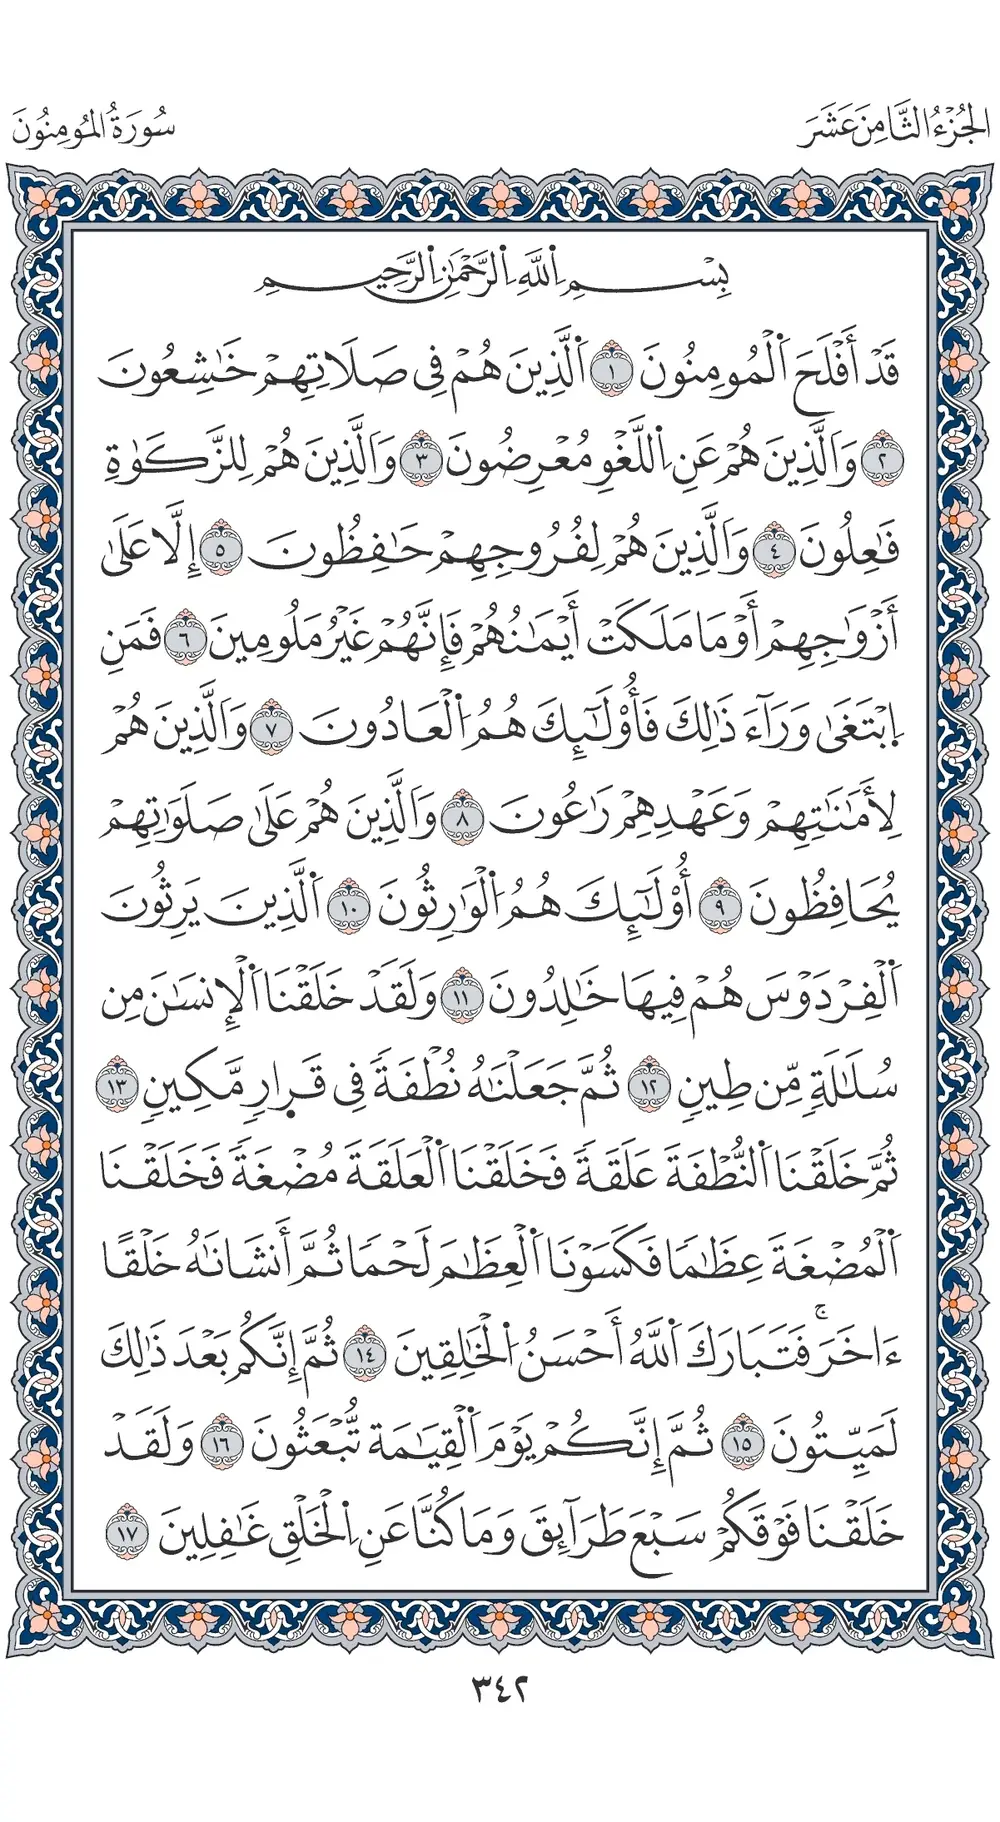 الجُزْءُ الثَّامِنَ عَشَرَ
سُورَةُ المُومِنُونَ
بِسْمِ اِ۬للَّهِ اِ۬لرَّحْمَٰنِ اِ۬لرَّحِيمِ
قَدْ أَفْلَحَ اَ۬لْمُومِنُونَ ١ اَ۬لَّذِينَ هُمْ فِي صَلَاتِهِمْ خَٰشِعُونَ
٢ وَالَّذِينَ هُمْ عَنِ اِ۬للَّغْوِ مُعْرِضُونَ ٣ وَالَّذِينَ هُمْ لِلزَّكَوٰةِ
فَٰعِلُونَ ٤ وَالَّذِينَ هُمْ لِفُرُوجِهِمْ حَٰفِظُونَ ٥ إِلَّا عَلَىٰ
أَزْوَٰجِهِمْ أَوْ مَا مَلَكَتْ أَيْمَٰنُهُمْ فَإِنَّهُمْ غَيْرُ مَلُومِينَ ٦ فَمَنِ
اِ۪بْتَغَىٰ وَرَآءَ ذَٰلِكَ فَأُوْلَٰٓئِكَ هُمُ اُ۬لْعَادُونَ ٧ وَالَّذِينَ هُمْ
لِأَمَٰنَٰتِهِمْ وَعَهْدِهِمْ رَٰعُونَ ٨ وَالَّذِينَ هُمْ عَلَىٰ صَلَوَٰتِهِمْ
يُحَافِظُونَ ٩ أُوْلَٰٓئِكَ هُمُ اُ۬لْوَٰرِثُونَ ١٠ اَ۬لَّذِينَ يَرِثُونَ
اَ۬لْفِرْدَوْسَ هُمْ فِيهَا خَٰلِدُونَ ١١ وَلَقَدْ خَلَقْنَا اَ۬لْإِنسَٰنَ مِن
سُلَٰلَةٍ مِّن طِينٍ ١٢ ثُمَّ جَعَلْنَٰهُ نُطْفَةً فِي قَرَارٍ مَّكِينٍ ١٣
ثُمَّ خَلَقْنَا اَ۬لنُّطْفَةَ عَلَقَةً فَخَلَقْنَا اَ۬لْعَلَقَةَ مُضْغَةً فَخَلَقْنَا
اَ۬لْمُضْغَةَ عِظَٰمًا فَكَسَوْنَا اَ۬لْعِظَٰمَ لَحْمًا ثُمَّ أَنشَانَٰهُ خَلْقًا
ءَاخَرَۚ فَتَبَارَكَ اَ۬للَّهُ أَحْسَنُ اُ۬لْخَٰلِقِينَ ١٤ ثُمَّ إِنَّكُم بَعْدَ ذَٰلِكَ
لَمَيِّتُونَ ١٥ ثُمَّ إِنَّكُمْ يَوْمَ اَ۬لْقِيَٰمَة تُّبْعَثُونَ ١٦ وَلَقَدْ
خَلَقْنَا فَوْقَكُمْ سَبْعَ طَرَآئِقَ وَمَا كُنَّا عَنِ اِ۬لْخَلْقِ غَٰفِلِينَ ١٧
٣٤٢